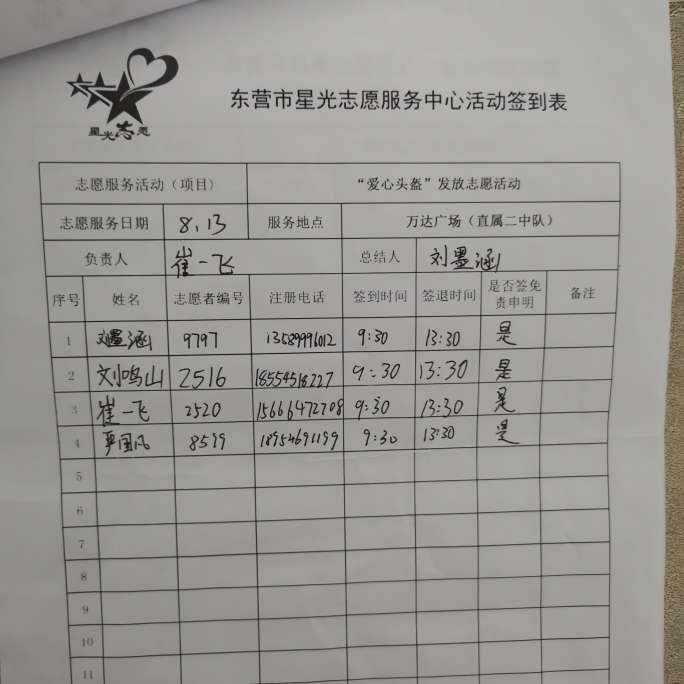 星光志愿
东营市星光志愿服务中心活动签到表
志愿服务活动（项目） “爱心头盔”发放志愿活动
志愿服务日期 8.13 服务地点 万达广场（直属二中队）
负责人 崔一飞 总结人 刘墨涵
序号 姓名 志愿者编号 注册电话 签到时间 签退时间 是否签免责申明 备注
1 刘墨涵 9797 13589996012 9:30 13:30 是
2 刘鸣山 2516 18554518227 9:30 13:30 是
3 崔一飞 2520 15666472708 9:30 13:30 是
4 8599 18954691199 9:30 13:30 是
5
6
7
8
9
10
11